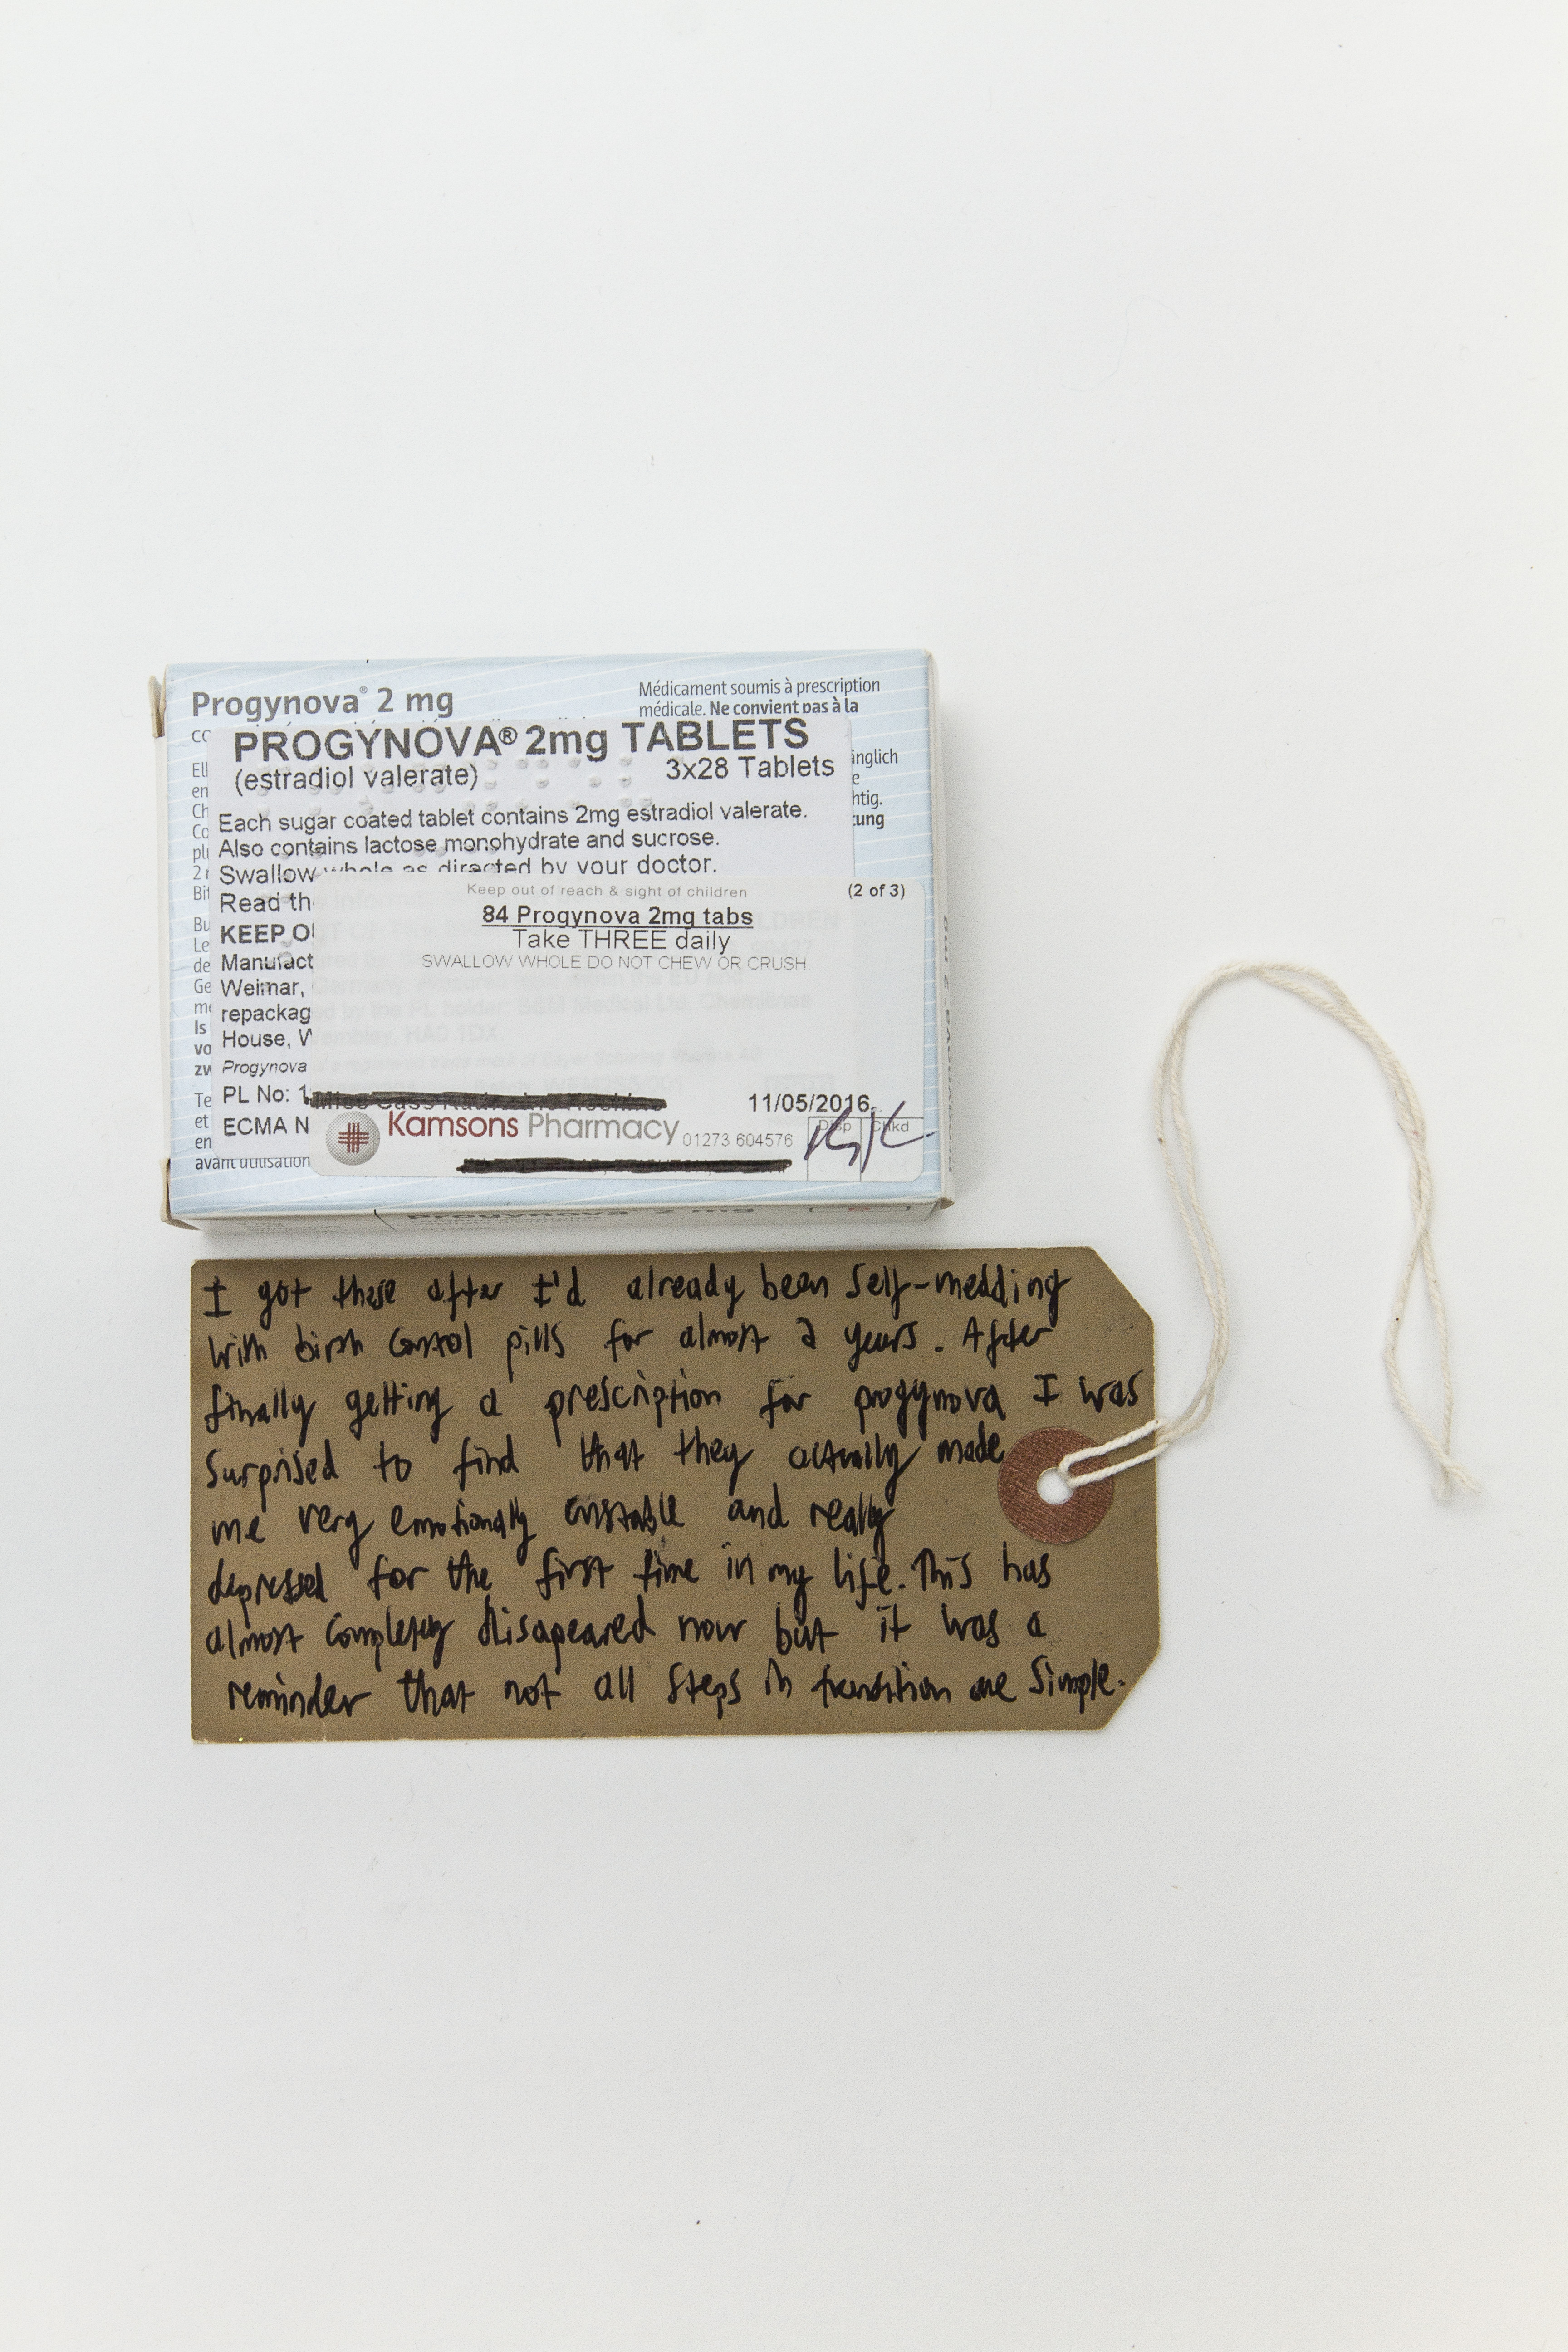 Progynova® 2 mg
Médicament soumis à prescription
médicale. Ne convient pas à la
PROGYNOVA® 2mg TABLETS
(estradiol valerate) 3x28 Tablets
Each sugar coated tablet contains 2mg estradiol valerate.
Also contains lactose monohydrate and sucrose.
Swallow whole as directed by your doctor.
Read th
KEEP O
Manufact
Weimar,
repackag
House, W
Progynova
PL No: 1
ECMA N
avant utilisation
Keep out of reach & sight of children (2 of 3)
84 Progynova 2mg tabs
Take THREE daily
SWALLOW WHOLE DO NOT CHEW OR CRUSH.
11/05/2016
Kamsons Pharmacy 01273 604576
Disp Chkd
Progynova 2 mg
I got these after I'd already been self-medding
with birth control pills for almost 2 years. After
finally getting a prescription for progynova I was
surprised to find that they actually made
me very emotionally unstable and really
depressed for the first time in my life. This has
almost completely disapeared now but it was a
reminder that not all steps in transition are simple.